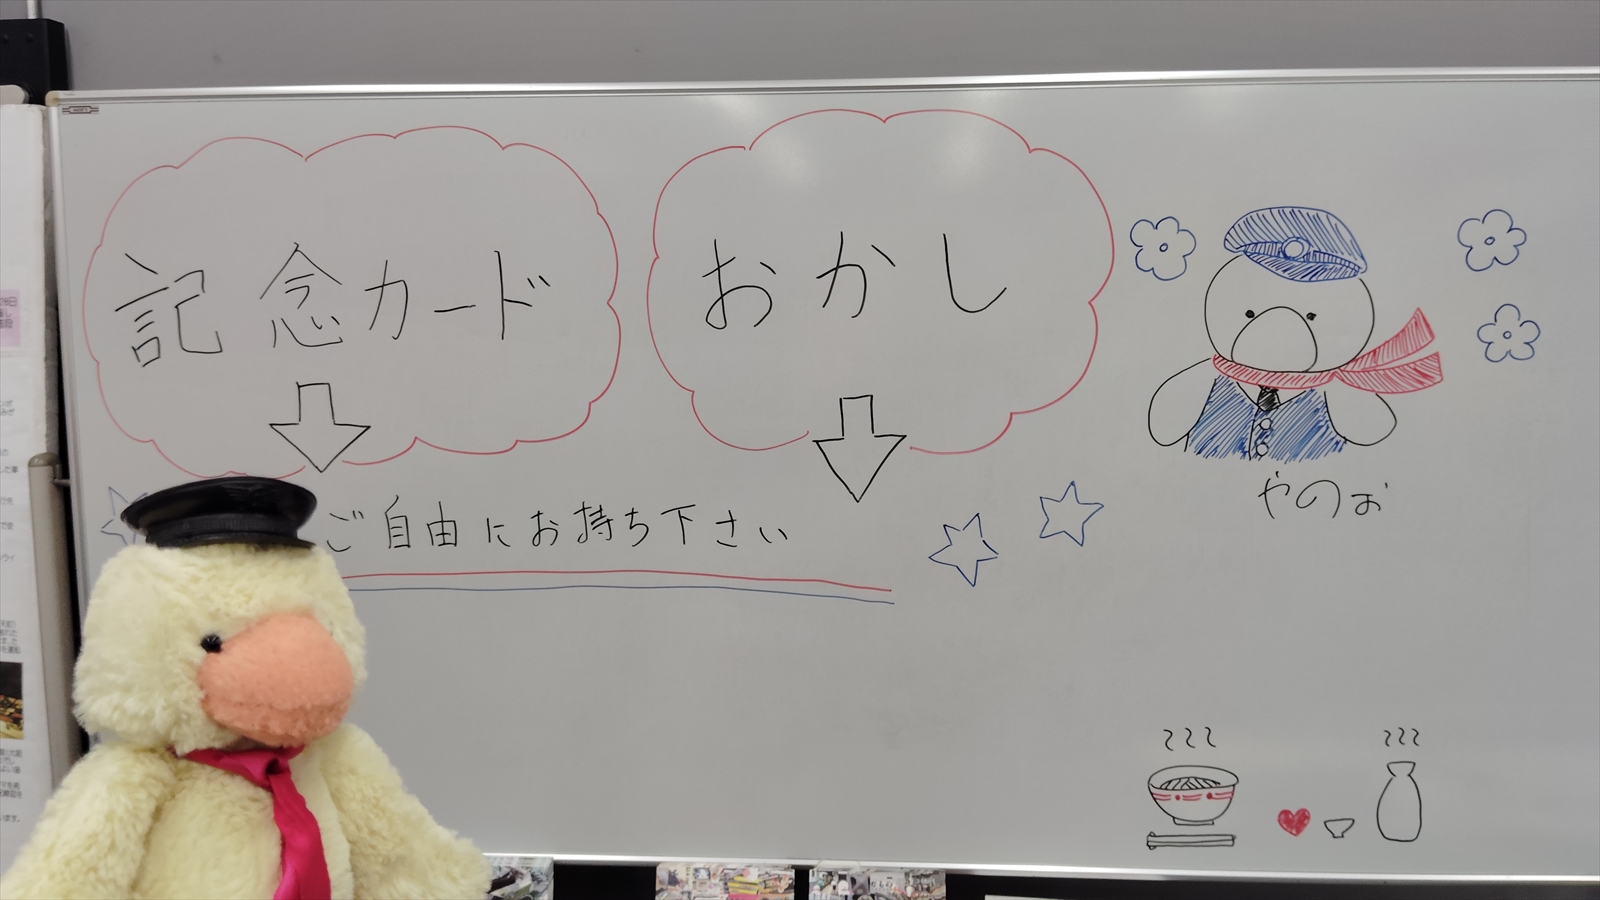 記念カード
おかし
ご自由にお持ち下さい
やのお